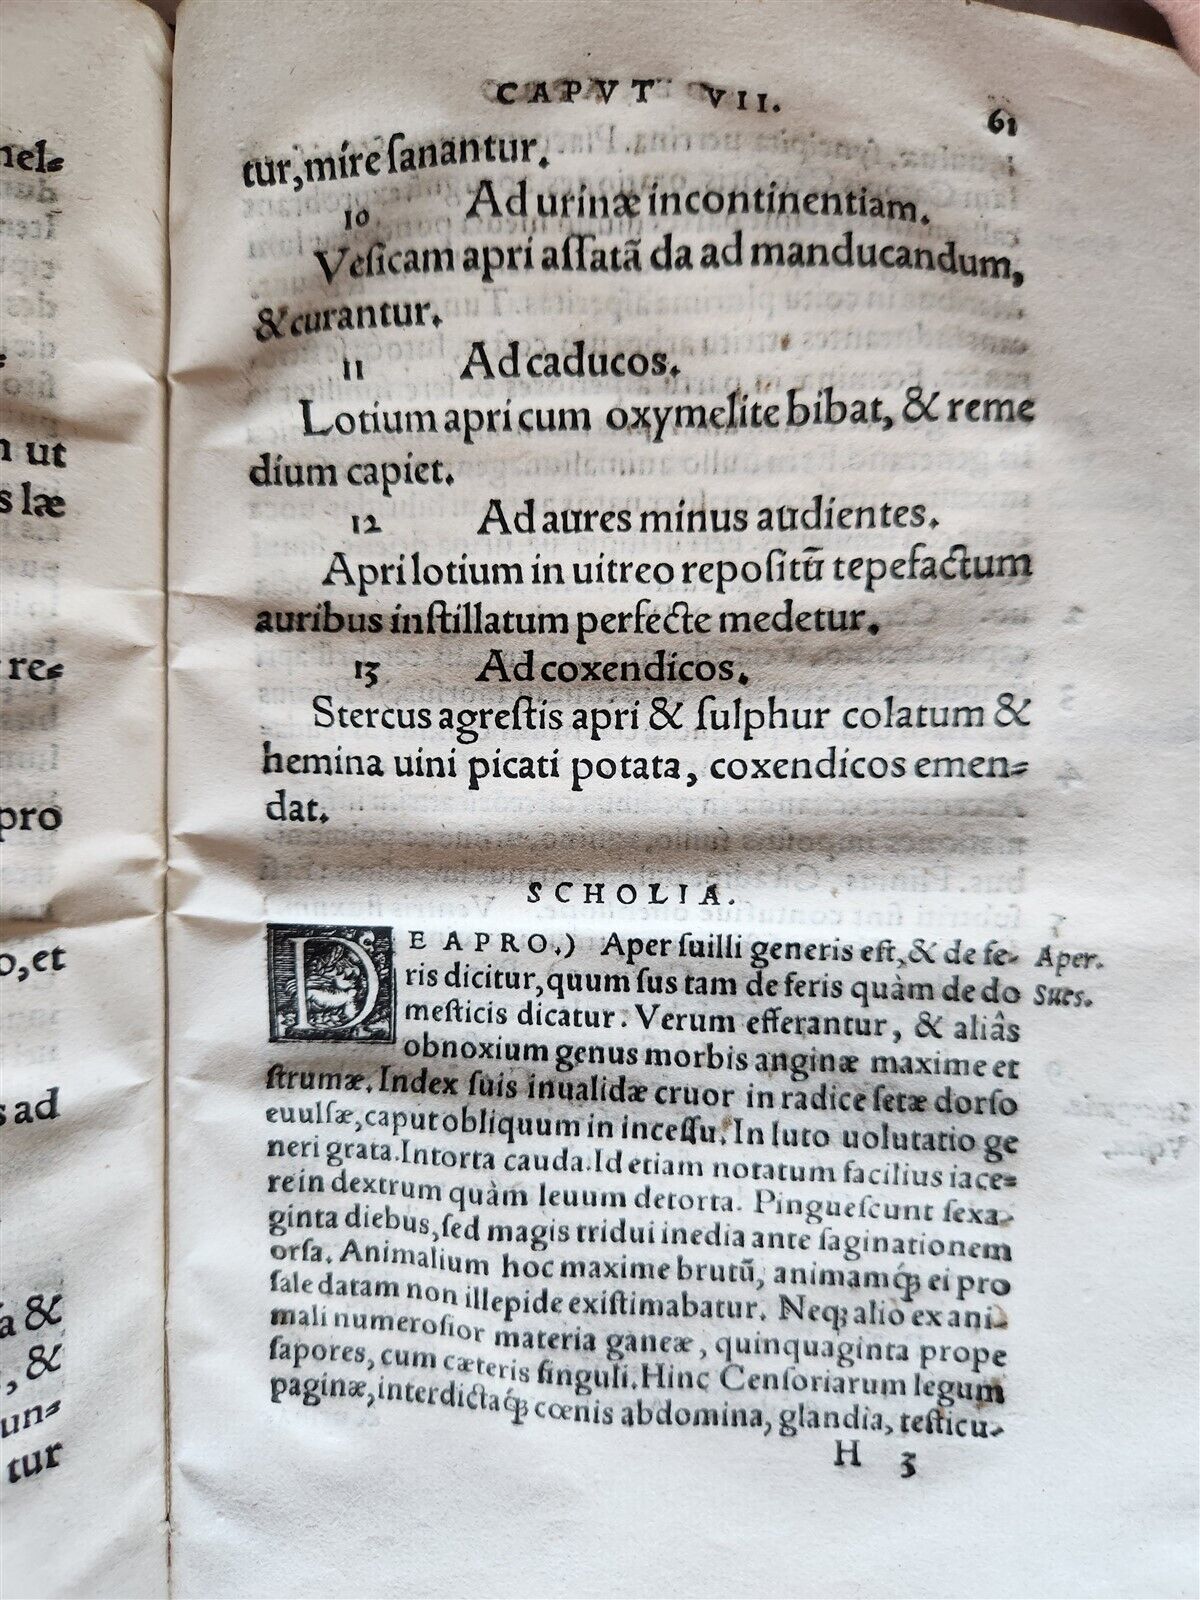 nel⸗
n ut
s læ
re⸗
pro
o, et
s ad
a &
, &
un⸗
tur
CAPVT VII. 61
tur, mire ſanantur.
10 Ad urinæ incontinentiam.
Veſicam apri aſſatã da ad manducandum,
& curantur.
11 Ad caducos.
Lotium apri cum oxymelite bibat, & reme
dium capiet.
12 Ad aures minus audientes.
Apri lotium in uitreo repoſitũ tepefactum
auribus inſtillatum perfecte medetur.
13 Ad coxendicos.
Stercus agreſtis apri & ſulphur colatum &
hemina uini picati potata, coxendicos emen⸗
dat.
SCHOLIA.
DE APRO.) Aper ſuilli generis eſt, & de fe- Aper.
ris dicitur, quum ſus tam de feris quàm de do Sues.
meſticis dicatur. Verum efferantur, & aliâs
obnoxium genus morbis anginæ maxime et
ſtrumæ. Index ſuis inualidæ cruor in radice ſetæ dorſo
euulſæ, caput obliquum in inceſſu. In luto uolutatio ge
neri grata. Intorta cauda. Id etiam notatum facilius iace⸗
re in dextrum quàm leuum detorta. Pingueſcunt ſexa-
ginta diebus, ſed magis tridui inedia ante ſaginationem
orſa. Animalium hoc maxime brutũ, animamq́ꝫ ei pro
ſale datam non illepide exiſtimabatur. Neqꝫ alio ex ani-
mali numeroſior materia ganeæ, quinquaginta prope
ſapores, cum cæteris ſinguli. Hinc Cenſoriarum legum
paginæ, interdictaq́ꝫ cœnis abdomina, glandia, teſticu-
H 3